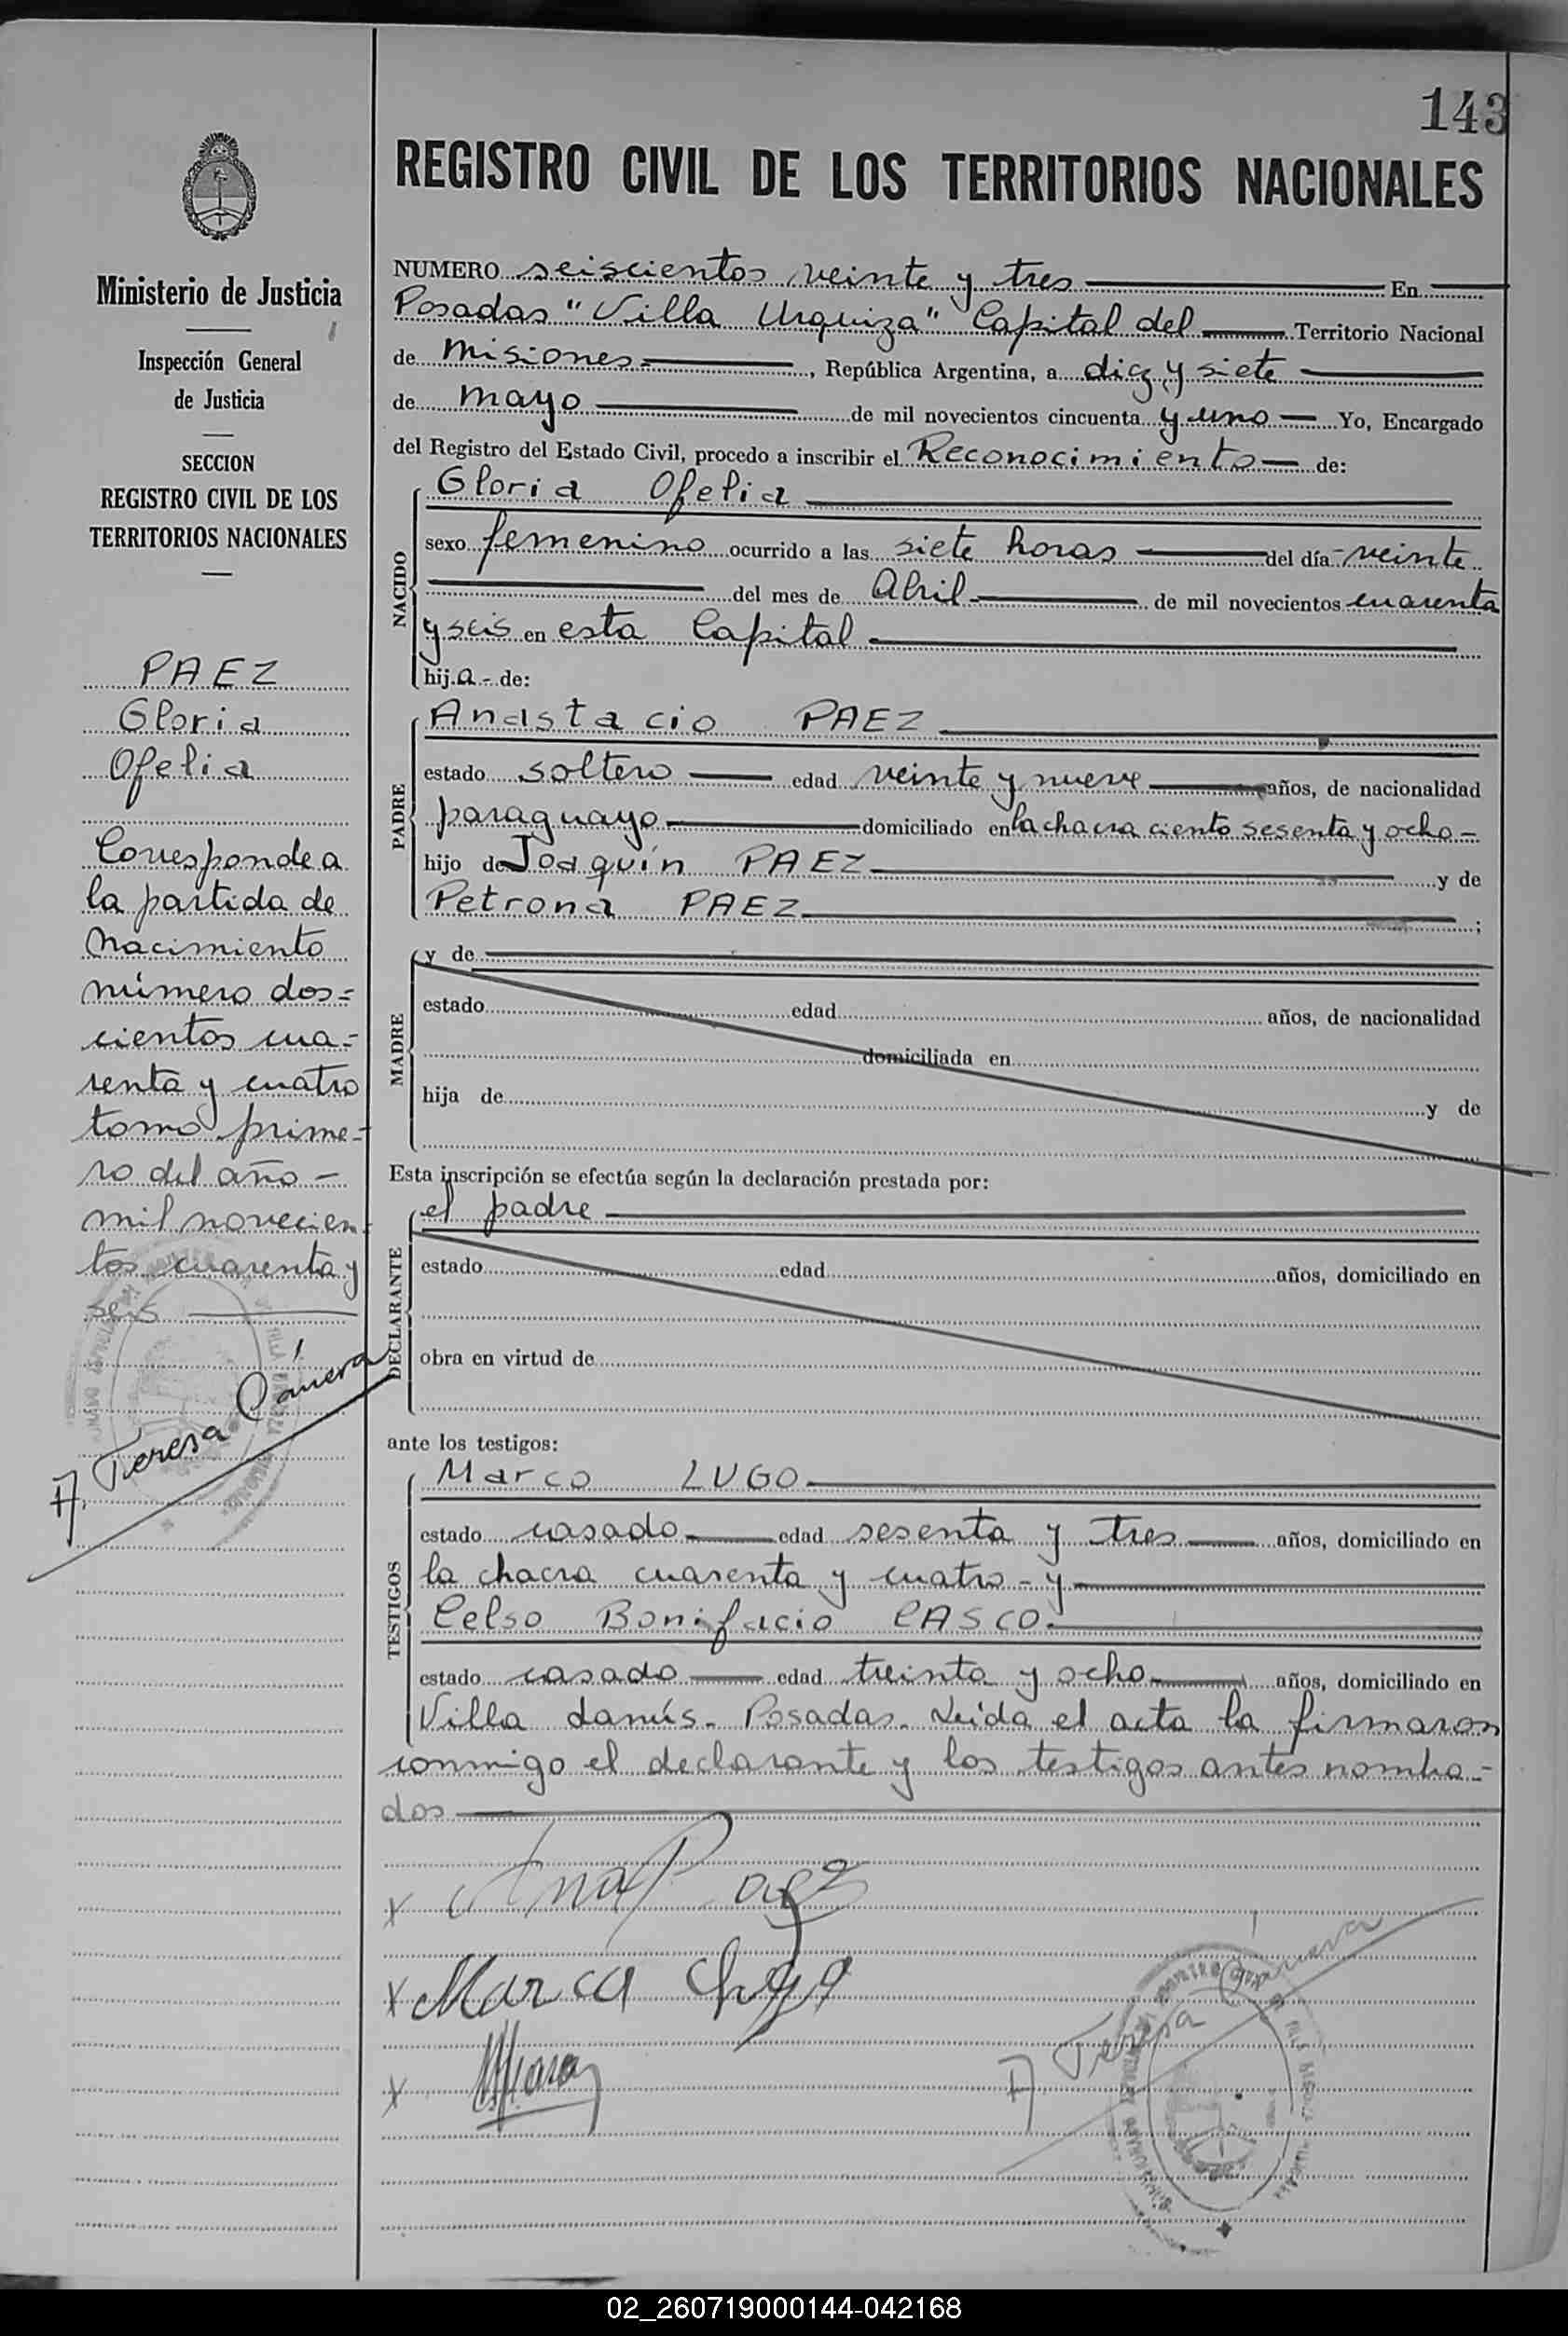 143
REGISTRO CIVIL DE LOS TERRITORIOS NACIONALES
Ministerio de Justicia
Inspección General
de Justicia
SECCION
REGISTRO CIVIL DE LOS
TERRITORIOS NACIONALES
PAEZ
Gloria
Ofelia
Corresponde a
la partida de
Nacimiento
número dos=
cientos cua=
renta y cuatro
tomo prime=
ro del año —
mil novecien
tos cuarenta y
seis
A. Teresa
NUMERO seiscientos veinte y tres En
Posadas "Villa Urquiza" Capital del Territorio Nacional
de Misiones , República Argentina, a diez y siete
de mayo de mil novecientos cincuenta y uno Yo, Encargado
del Registro del Estado Civil, procedo a inscribir el Reconocimiento de:
NACIDO
Gloria Ofelia
sexo femenino ocurrido a las siete horas del día veinte
del mes de Abril de mil novecientos cuarenta
y seis en esta Capital
hij.a. de:
PADRE
Anastacio PAEZ
estado soltero edad veinte y nueve años, de nacionalidad
paraguayo domiciliado en la chacra ciento sesenta y ocho -
hijo de Joaquín PAEZ y de
Petrona PAEZ ;
MADRE
y de
estado edad años, de nacionalidad
domiciliada en
hija de y de
Esta inscripción se efectúa según la declaración prestada por:
DECLARANTE
el padre
estado edad años, domiciliado en
obra en virtud de
ante los testigos:
TESTIGOS
Marco LUGO
estado casado edad sesenta y tres años, domiciliado en
la chacra cuarenta y cuatro - y
Celso Bonifacio CASCO
estado casado edad treinta y ocho años, domiciliado en
Villa Lanús - Posadas. Leida el acta la firmaron
conmigo el declarante y los testigos antes nombra=
dos
x Ana Paez
x Marca
x
A Teresa
02_260719000144-042168